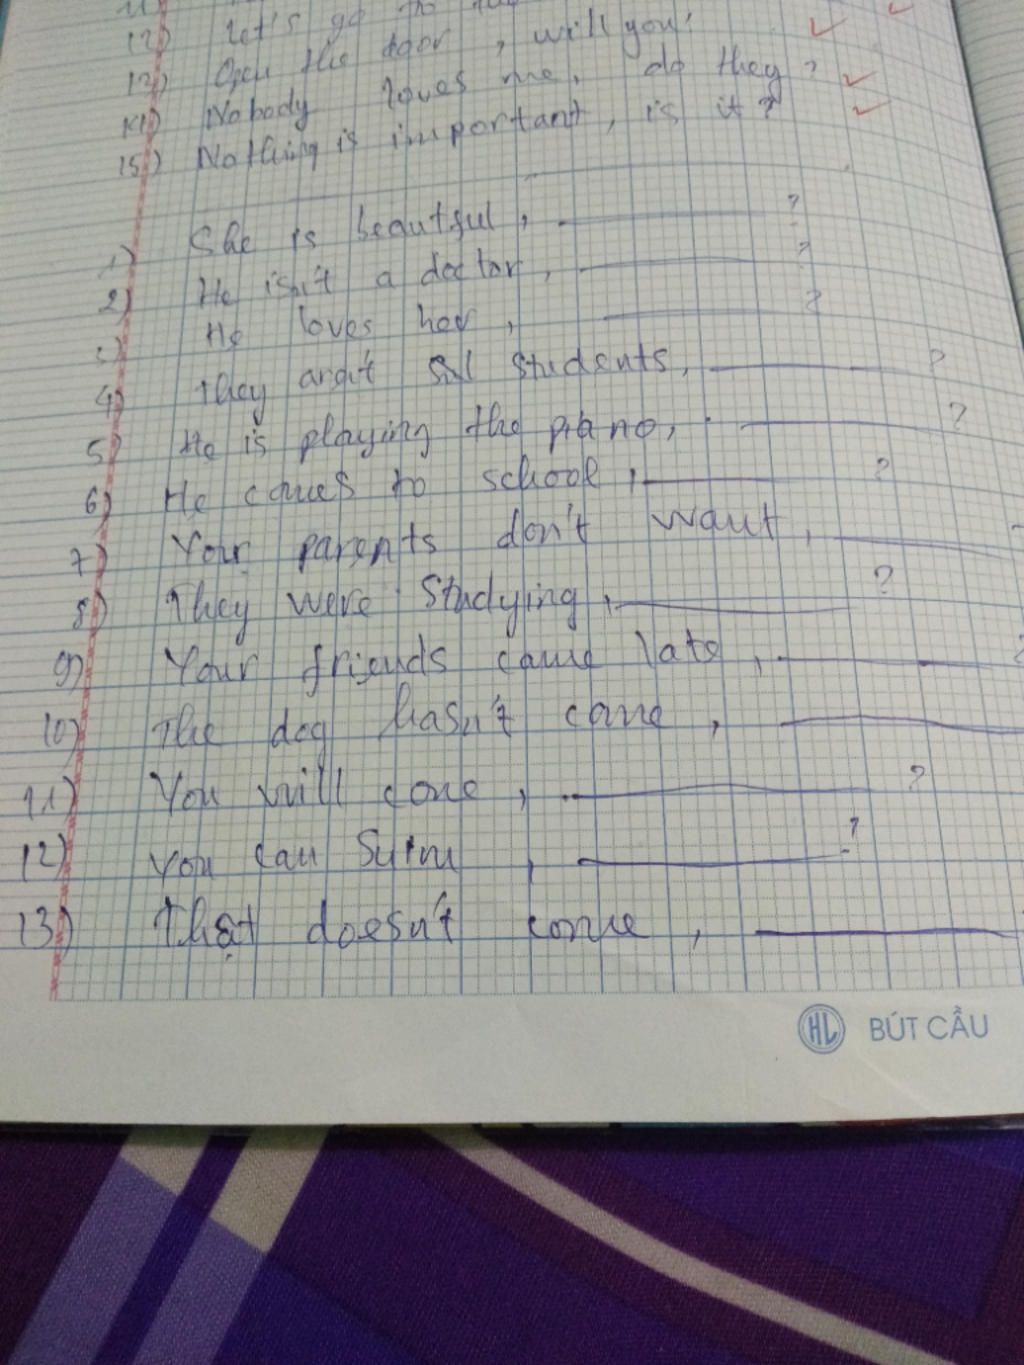 12) Let's go to
13) Open the door, will you?
14) Nobody loves me, do they?
15) Nothing is important, is it?
1) She is beautful, ?
2) He isn't a doctor, ?
3) He loves her, ?
4) They aren't students, ?
5) He is playing the piano, ?
6) He comes to school, ?
7) Your parents don't want,
8) They were studying, ?
9) Your friends came late, ?
10) The dog hasn't come,
11) You will come, ?
12) You can swim, ?
13) That doesn't come,
HL BÚT CẦU